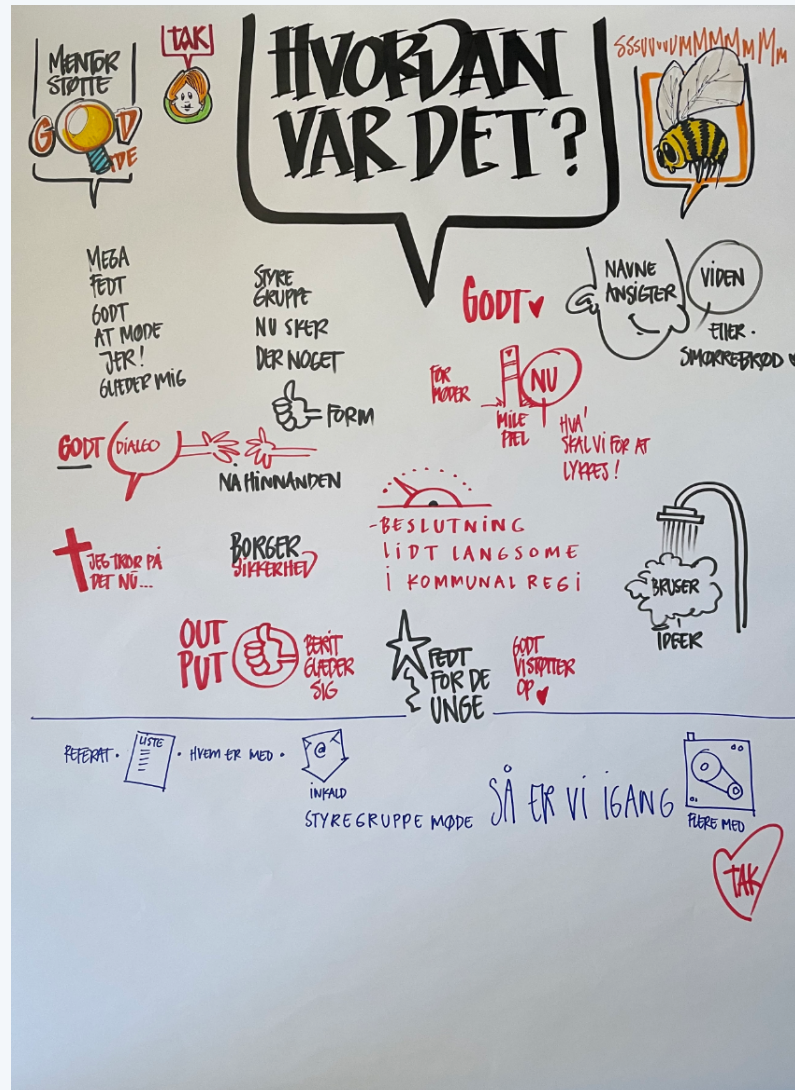 MENTOR
STØTTE
GOD
IDE
TAK
HVORDAN
VAR DET?
SSSUUVUUMMMMMMM
MEGA
FEDT
GODT
AT MØDE
JER!
GLÆDER MIG
STYRE
GRUPPE
NU SKER
DER NOGET
FORM
GODT
NAVNE
ANSIGTER
VIDEN
EFTER.
SMØRREBRØD
FOR
MØDER
MILE
PÆL
NU
HVA'
SKAL VI FOR AT
LYKKES!
GODT
DIALOG
NÅ HINNANDEN
-BESLUTNING
LIDT LANGSOME
I KOMMUNAL REGI
JEG TROR PÅ
DET NU...
BORGER
SIKKERHED
BRUSER
IDEER
OUT
PUT
BERIT
GLÆDER
SIG
FEDT
FOR DE
UNGE
GODT
VI STØTTER
OP
REFERAT.
LISTE
. HVEM ER MED .
@
INKALD
STYREGRUPPE MØDE
SÅ ER VI IGANG
FLERE MED
TAK